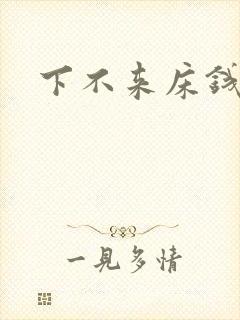 下不来床钱
一見多情